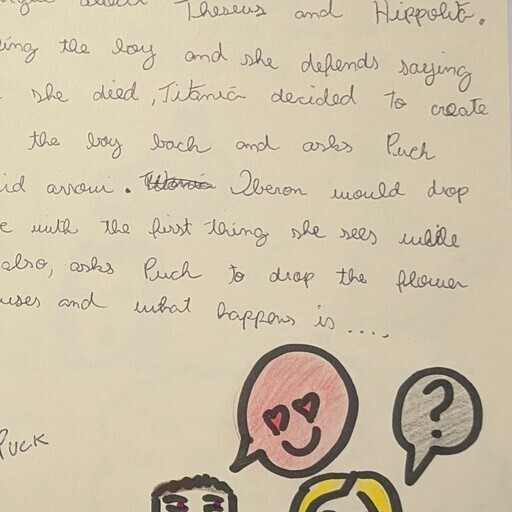 about Theseus and Hippolita.
ing the boy and she defends saying
she died, Titania decided to create
the boy back and asks Puck
id arrow. Titania Oberon would drop
e with the first thing she sees while
also, asks Puck to drop the flower
uses and what happens is ....
PUCK
?